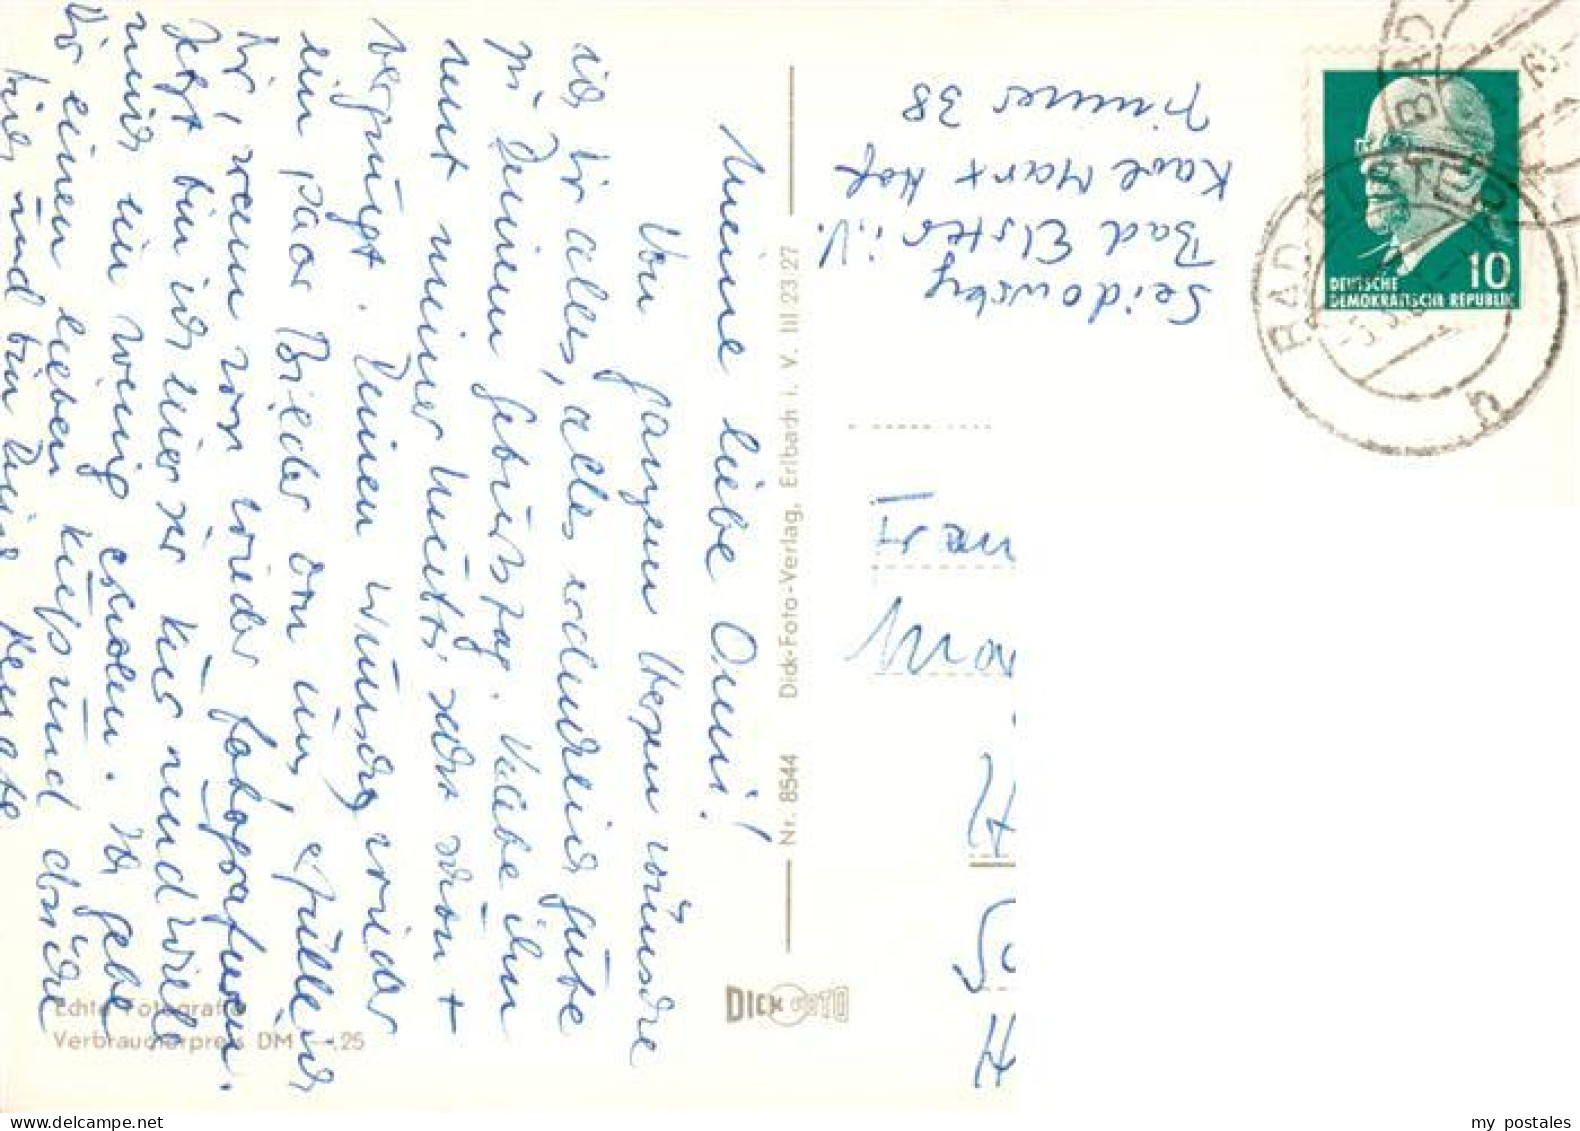 Meine liebe Omi!
Von ganzem Herzen wünsche
ich Dir alles, alles erdenklich Gute
zu Deinem Geburtstag. Habe ihn
mit meiner Mutti sehr schön +
vergnügt. Deinen Wunsch, wieder
ein paar Bilder von uns, erfülle ich
Dir, wenn wir wieder fotografieren.
Jetzt bin ich hier zur Kur und will
mich ein wenig erholen. Ich gebe
Dir einen lieben Kuß und drücke
und bin Deine Renate
Seidowsky
Bad Elster i. V.
Karl Marx Hof
Zimmer 38
Nr. 8544 Dick-Foto-Verlag, Erlbach i. V. III 23 27
DICK FOTO
Echte Fotografie
Verbraucherpreis DM —.25
10
DEUTSCHE
DEMOKRATISCHE REPUBLIK
BAD ELSTER
b
BAD
Frau
H
H
my postales